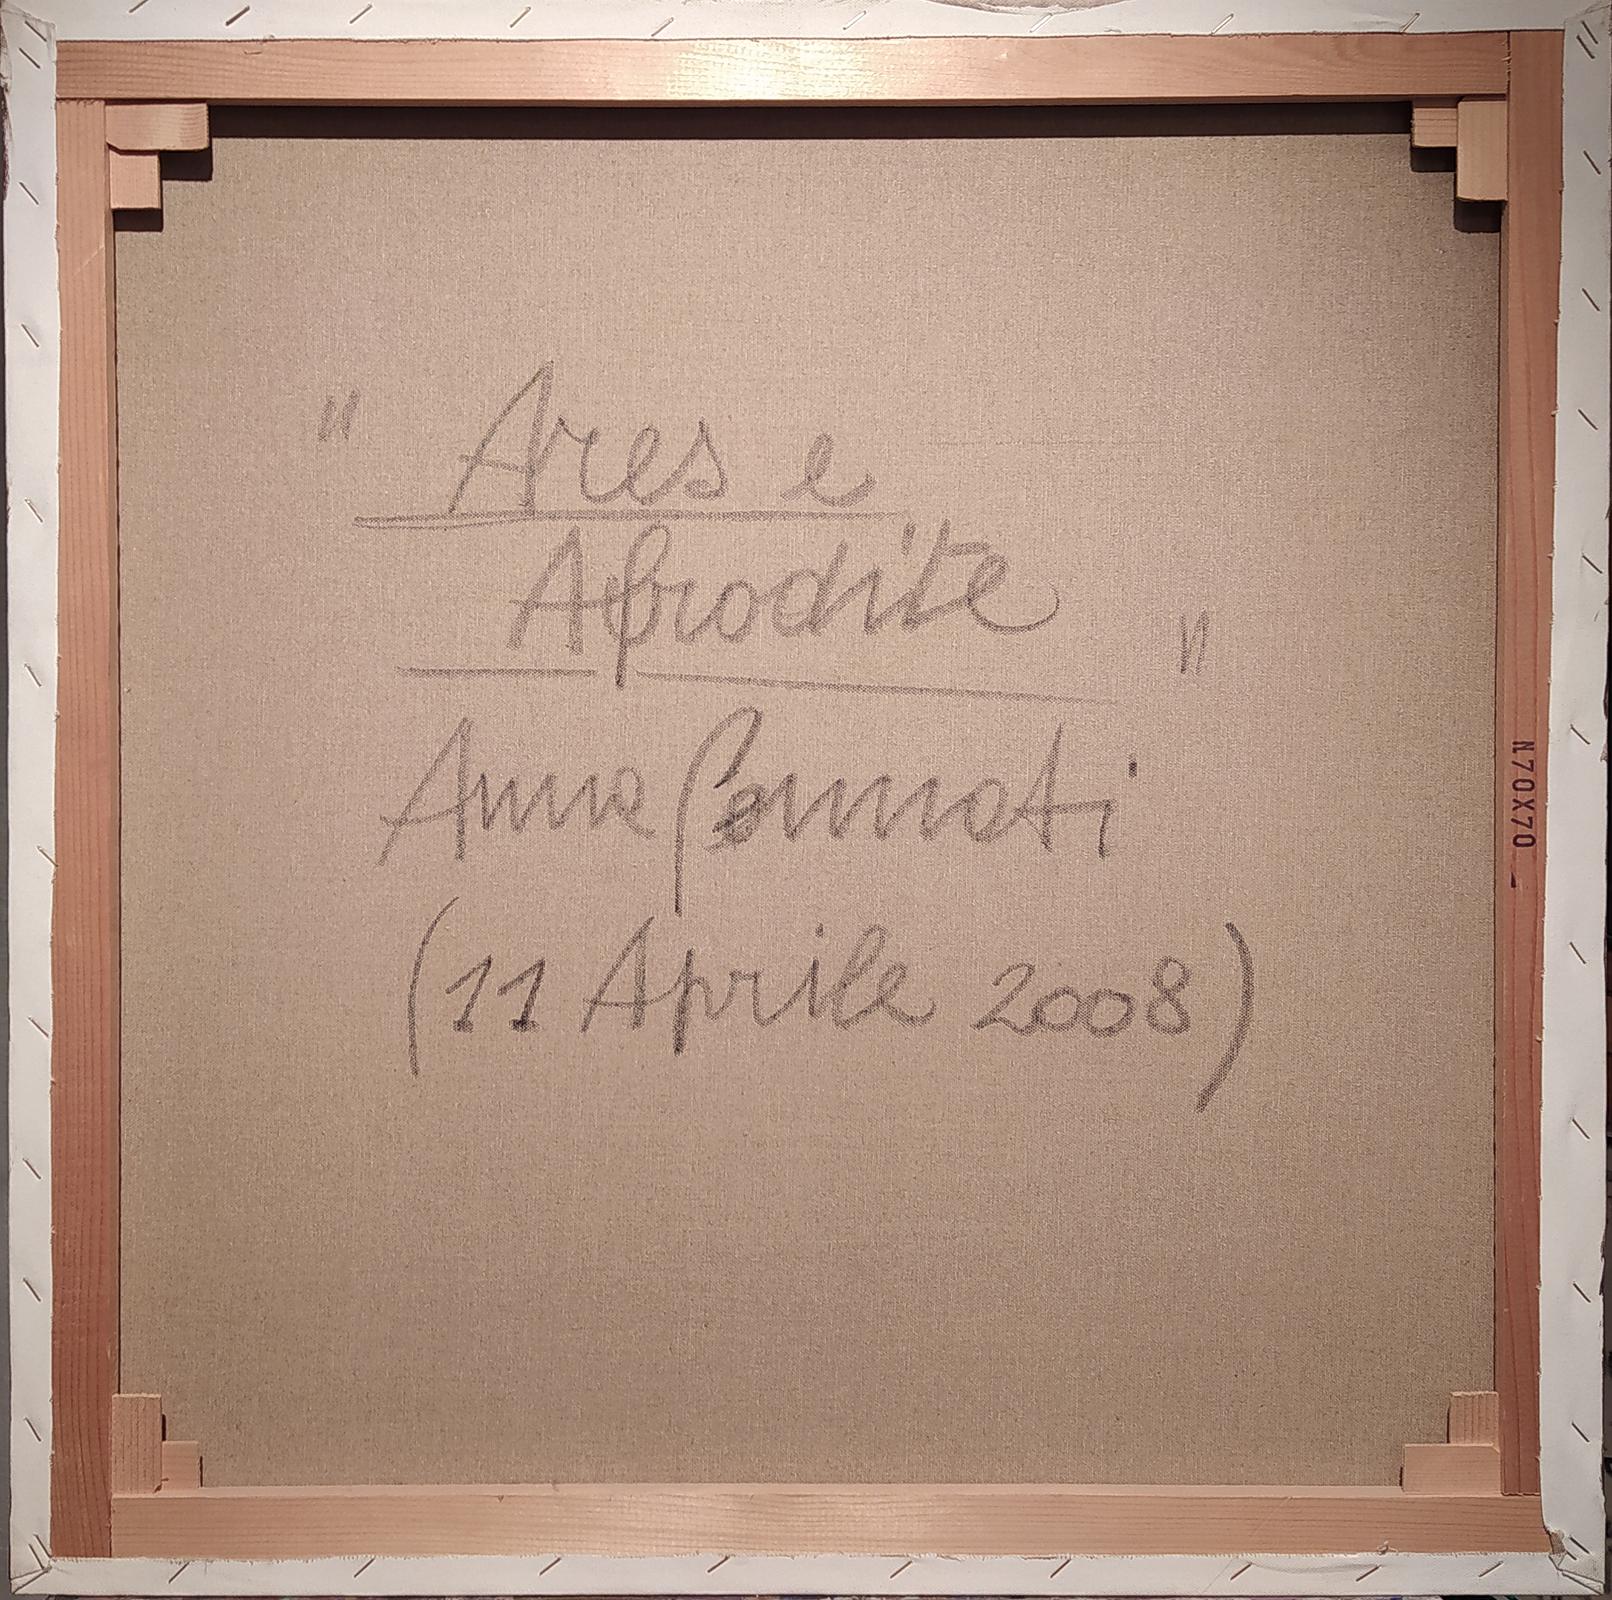 " Ares e
Afrodite "
Anna Pennati
(11 Aprile 2008)
N70X70